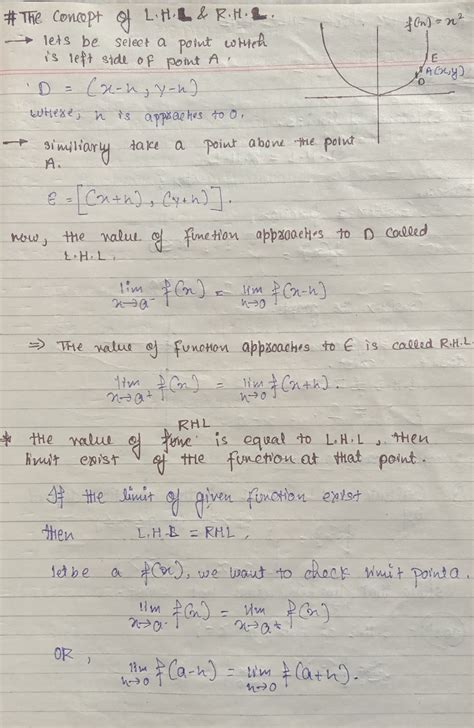 # The concept of L.H.L & R.H.L.
f(x) = x²
→ lets be select a point which
is left side of point A.
E
A(x,y)
D
D = (x-h, y-h)
where, h is approaches to 0.
→ similiarly take a point above the point
A.
E = [(x+h), (y+h)].
now, the value of function approaches to D called
L.H.L.
lim x→a⁻ f(x) = lim h→0 f(x-h)
⇒ The value of function approaches to E is called R.H.L.
lim x→a⁺ f(x) = lim h→0 f(x+h).
* the value of RHL is equal to L.H.L, then
limit exist of the function at that point.
If the limit of given function exist
then L.H.L = RHL.
let be a f(x), we want to check limit point a.
lim x→a⁻ f(x) = lim x→a⁺ f(x)
OR,
lim h→0 f(a-h) = lim h→0 f(a+h).